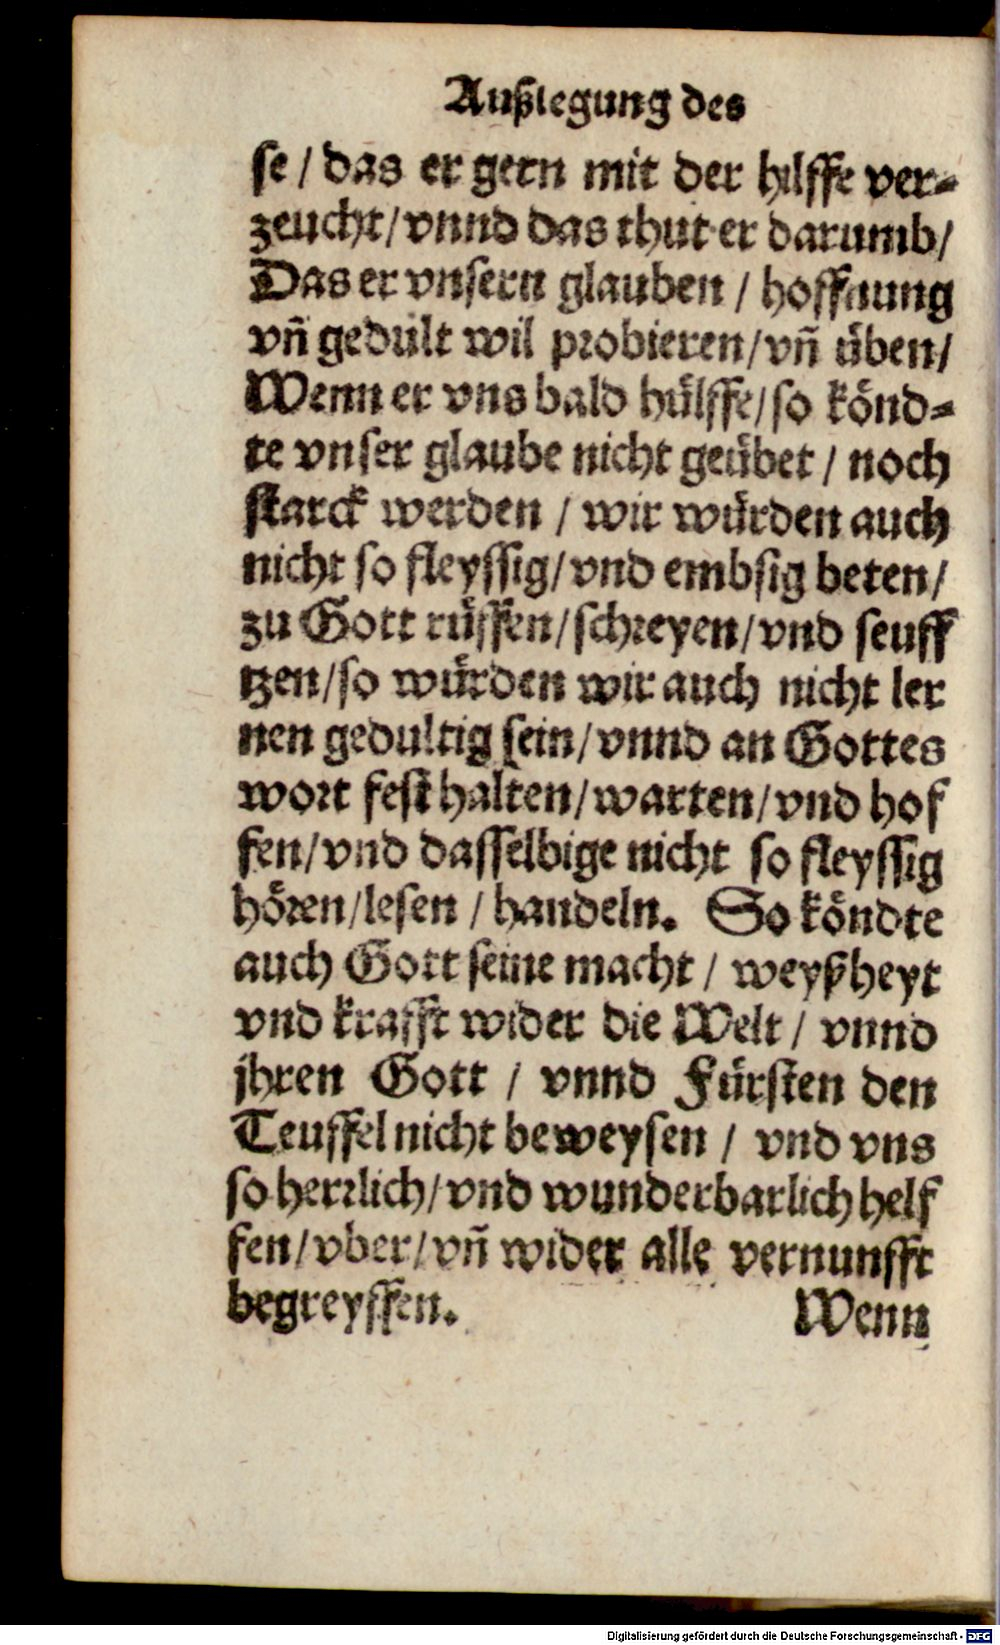 Außlegung des
se / das er gern mit der hilffe ver-
zeucht/ vnnd das thut er darumb/
Das er vnsern glauben / hoffnung
vñ gedült wil probieren/ vñ üben/
Wenn er vns bald hülffe/ so könd-
te vnser glaube nicht geübet / noch
starck werden / wir würden auch
nicht so fleyssig/ vnd embsig beten/
zu Gott rüffen/ schreyen/ vnd seuff
tzen/ so würden wir auch nicht ler
nen gedultig sein/ vnnd an Gottes
wort fest halten/ warten/ vnd hof
fen/ vnd dasselbige nicht so fleyssig
hören/ lesen / handeln. So köndte
auch Gott seine macht / weyßheyt
vnd krafft wider die Welt / vnnd
jhren Gott / vnnd Fürsten den
Teuffel nicht beweysen / vnd vns
so herrlich/ vnd wunderbarlich helf
fen/ vber/ vñ wider alle vernunfft
begreyffen. Wenn
Digitalisierung gefördert durch die Deutsche Forschungsgemeinschaft - DFG